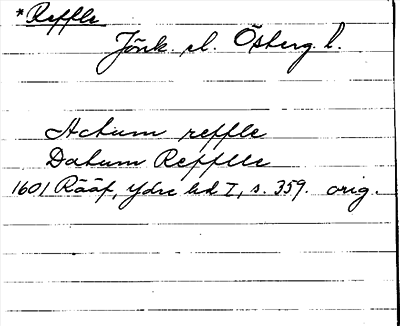 *Reffle
Jönk. el. Österg. l.
Actum reffle
Datum Refflle
1601 Rääf, Ydre hd I, s. 359. orig.